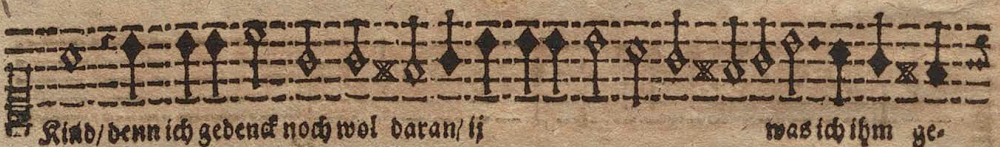 Kind/ denn ich gedenck noch wol daran/ ij was ich ihm ge-